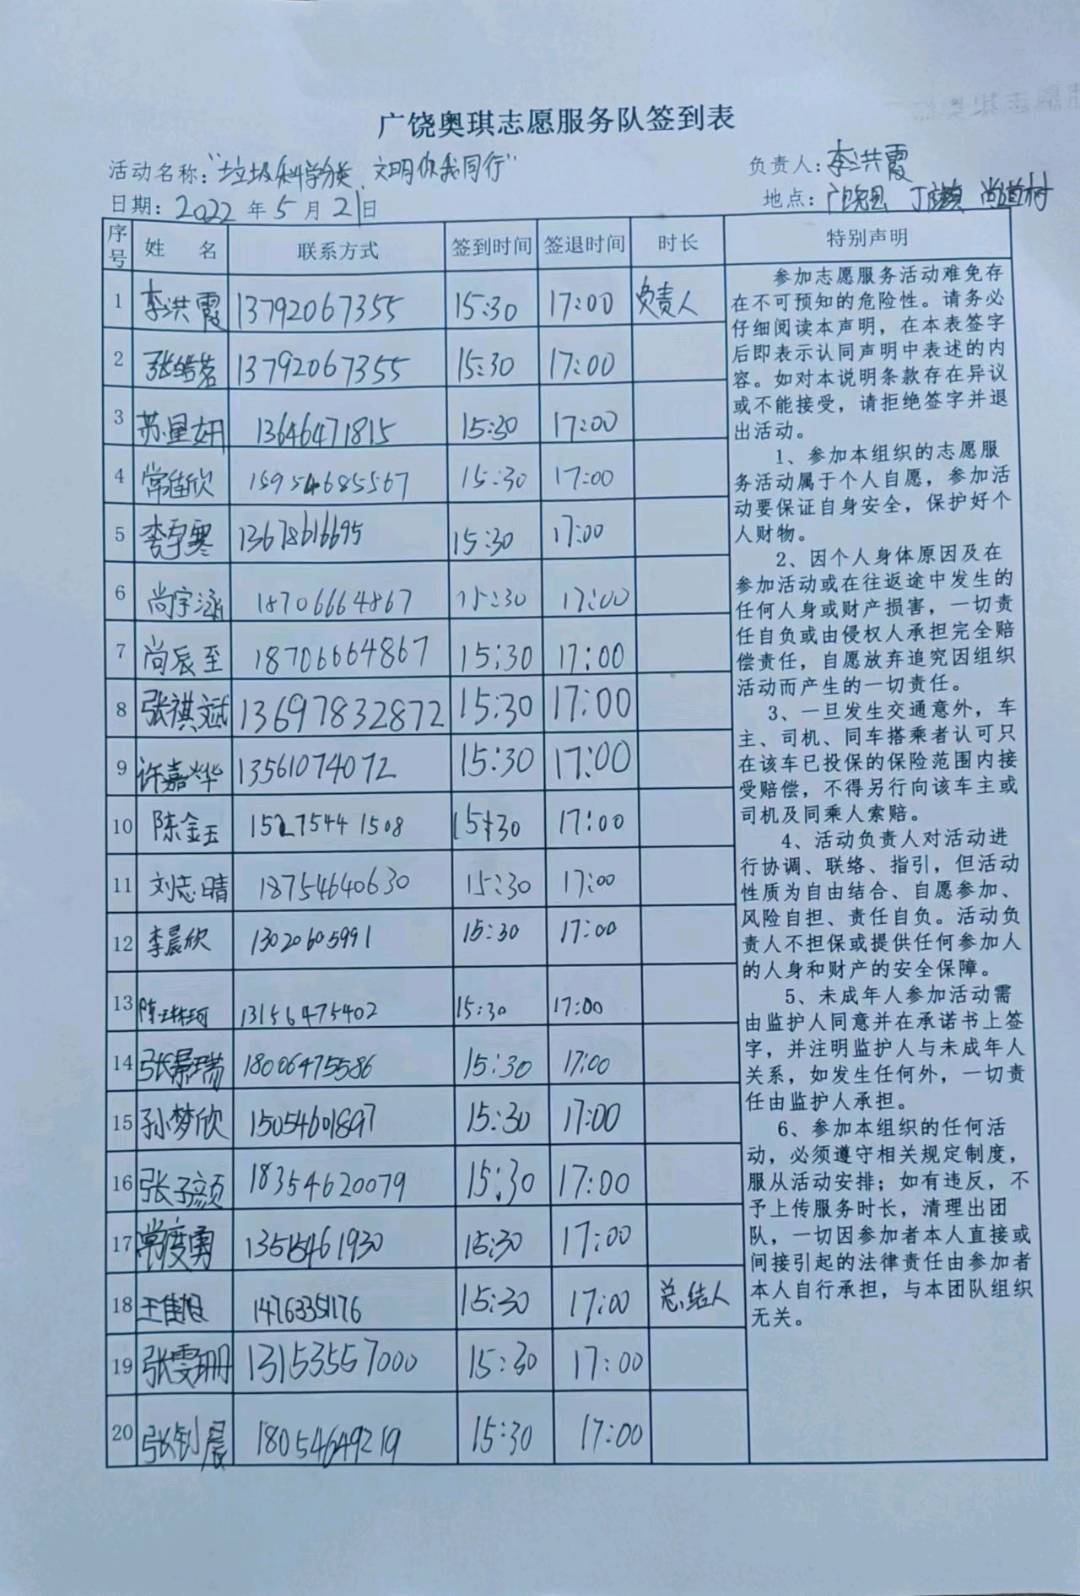 广饶奥琪志愿服务队签到表
活动名称："垃圾科学分类、文明你我同行"
负责人：李洪霞
日期：2022年5月21日
地点：广饶县 丁庄镇 尚道村
序号 姓名 联系方式 签到时间 签退时间 时长 特别声明
1 李洪霞 13792067355 15:30 17:00 负责人
2 张皓茗 13792067355 15:30 17:00
3 苏星妍 13646471815 15:30 17:00
4 常佳欣 15954685567 15:30 17:00
5 李宇寒 13678616695 15:30 17:00
6 尚宇涵 18706664867 15:30 17:00
7 尚辰至 18706664867 15:30 17:00
8 张祺斌 13697832872 15:30 17:00
9 许嘉烨 13561074072 15:30 17:00
10 陈金玉 15275441508 15:30 17:00
11 刘志晴 18754640630 15:30 17:00
12 李晨欣 13020605991 15:30 17:00
13 陈珂 13156475402 15:30 17:00
14 张景瑞 18006475586 15:30 17:00
15 孙梦欣 15054601897 15:30 17:00
16 张子颜 18354620079 15:30 17:00
17 常庆勇 13515461930 15:30 17:00
18 王佳旭 14763351176 15:30 17:00 总结人
19 张雯珊 13153557000 15:30 17:00
20 张钊晨 18054649219 15:30 17:00
参加志愿服务活动难免存
在不可预知的危险性。请务必
仔细阅读本声明，在本表签字
后即表示认同声明中表述的内
容。如对本说明条款存在异议
或不能接受，请拒绝签字并退
出活动。
1、参加本组织的志愿服
务活动属于个人自愿，参加活
动要保证自身安全，保护好个
人财物。
2、因个人身体原因及在
参加活动或在往返途中发生的
任何人身或财产损害，一切责
任自负或由侵权人承担完全赔
偿责任，自愿放弃追究因组织
活动而产生的一切责任。
3、一旦发生交通意外，车
主、司机、同车搭乘者认可只
在该车已投保的保险范围内接
受赔偿，不得另行向该车主或
司机及同乘人索赔。
4、活动负责人对活动进
行协调、联络、指引，但活动
性质为自由结合、自愿参加、
风险自担、责任自负。活动负
责人不担保或提供任何参加人
的人身和财产的安全保障。
5、未成年人参加活动需
由监护人同意并在承诺书上签
字，并注明监护人与未成年人
关系，如发生任何外，一切责
任由监护人承担。
6、参加本组织的任何活
动，必须遵守相关规定制度，
服从活动安排；如有违反，不
予上传服务时长，清理出团
队，一切因参加者本人直接或
间接引起的法律责任由参加者
本人自行承担，与本团队组织
无关。